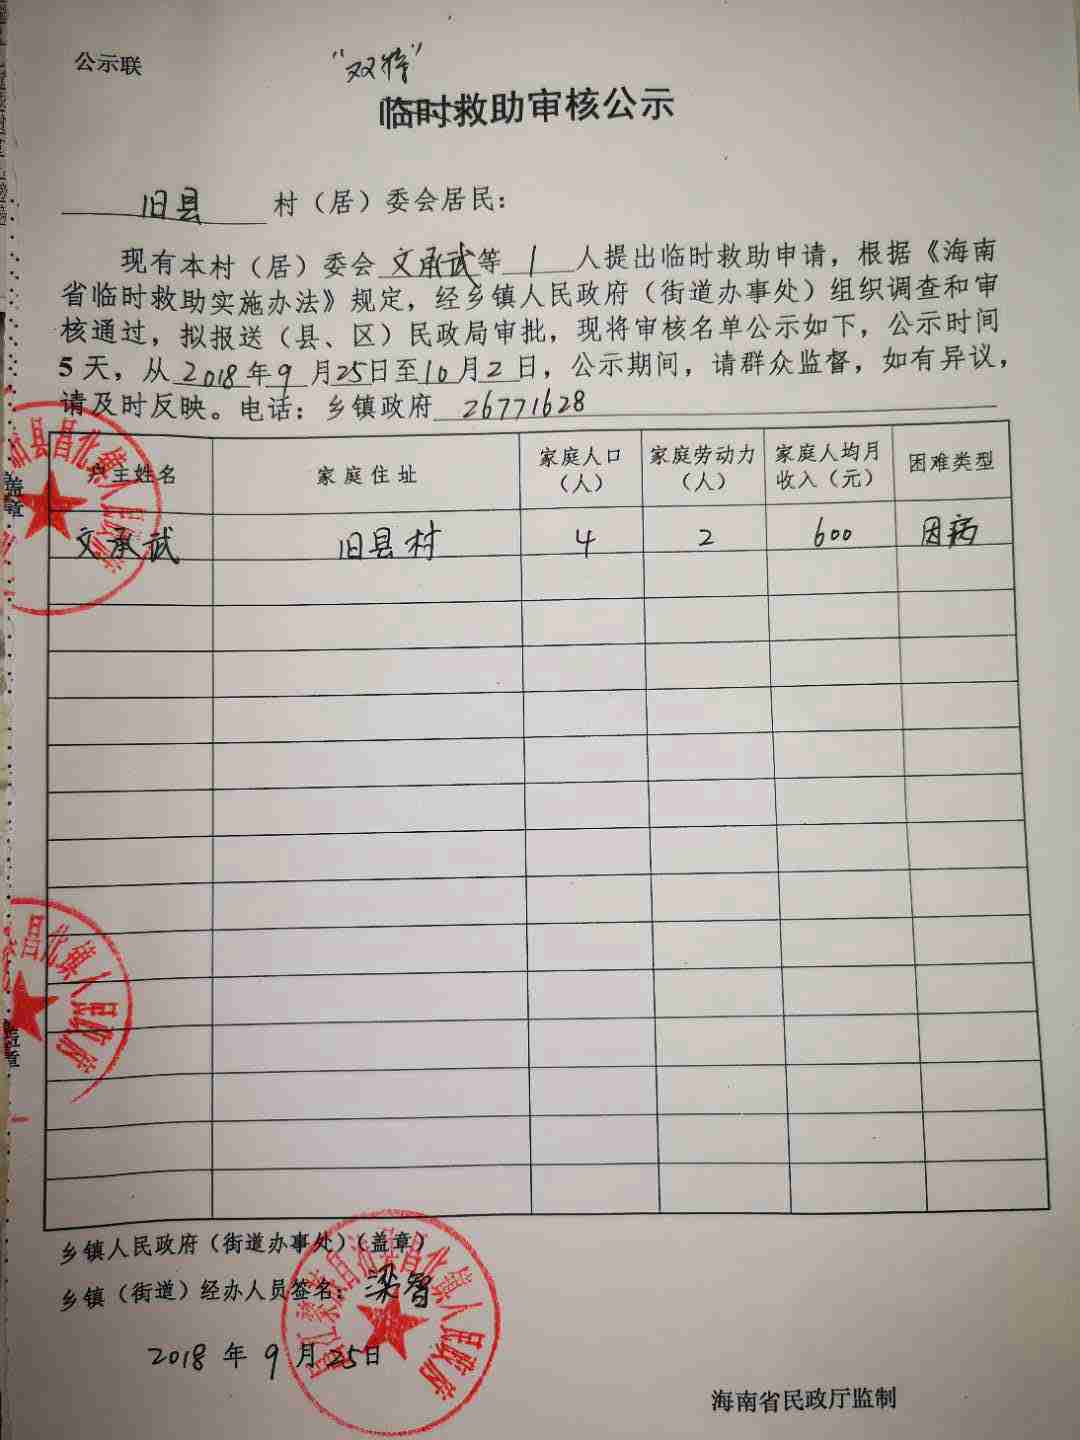 公示联
“双特”
临时救助审核公示
旧县 村（居）委会居民：
现有本村（居）委会 文承武 等 1 人提出临时救助申请，根据《海南
省临时救助实施办法》规定，经乡镇人民政府（街道办事处）组织调查和审
核通过，拟报送（县、区）民政局审批，现将审核名单公示如下，公示时间
5天，从 2018 年 9 月 25 日至 10 月 2 日，公示期间，请群众监督，如有异议，
请及时反映。电话：乡镇政府 26771628
户主姓名 家庭住址 家庭人口（人） 家庭劳动力（人） 家庭人均月收入（元） 困难类型
文承武 旧县村 4 2 600 因病
盖章
盖章
乡镇人民政府（街道办事处）（盖章）
乡镇（街道）经办人员签名：梁智
2018 年 9 月 25 日
昌江黎族自治县昌化镇人民政府
海南省民政厅监制